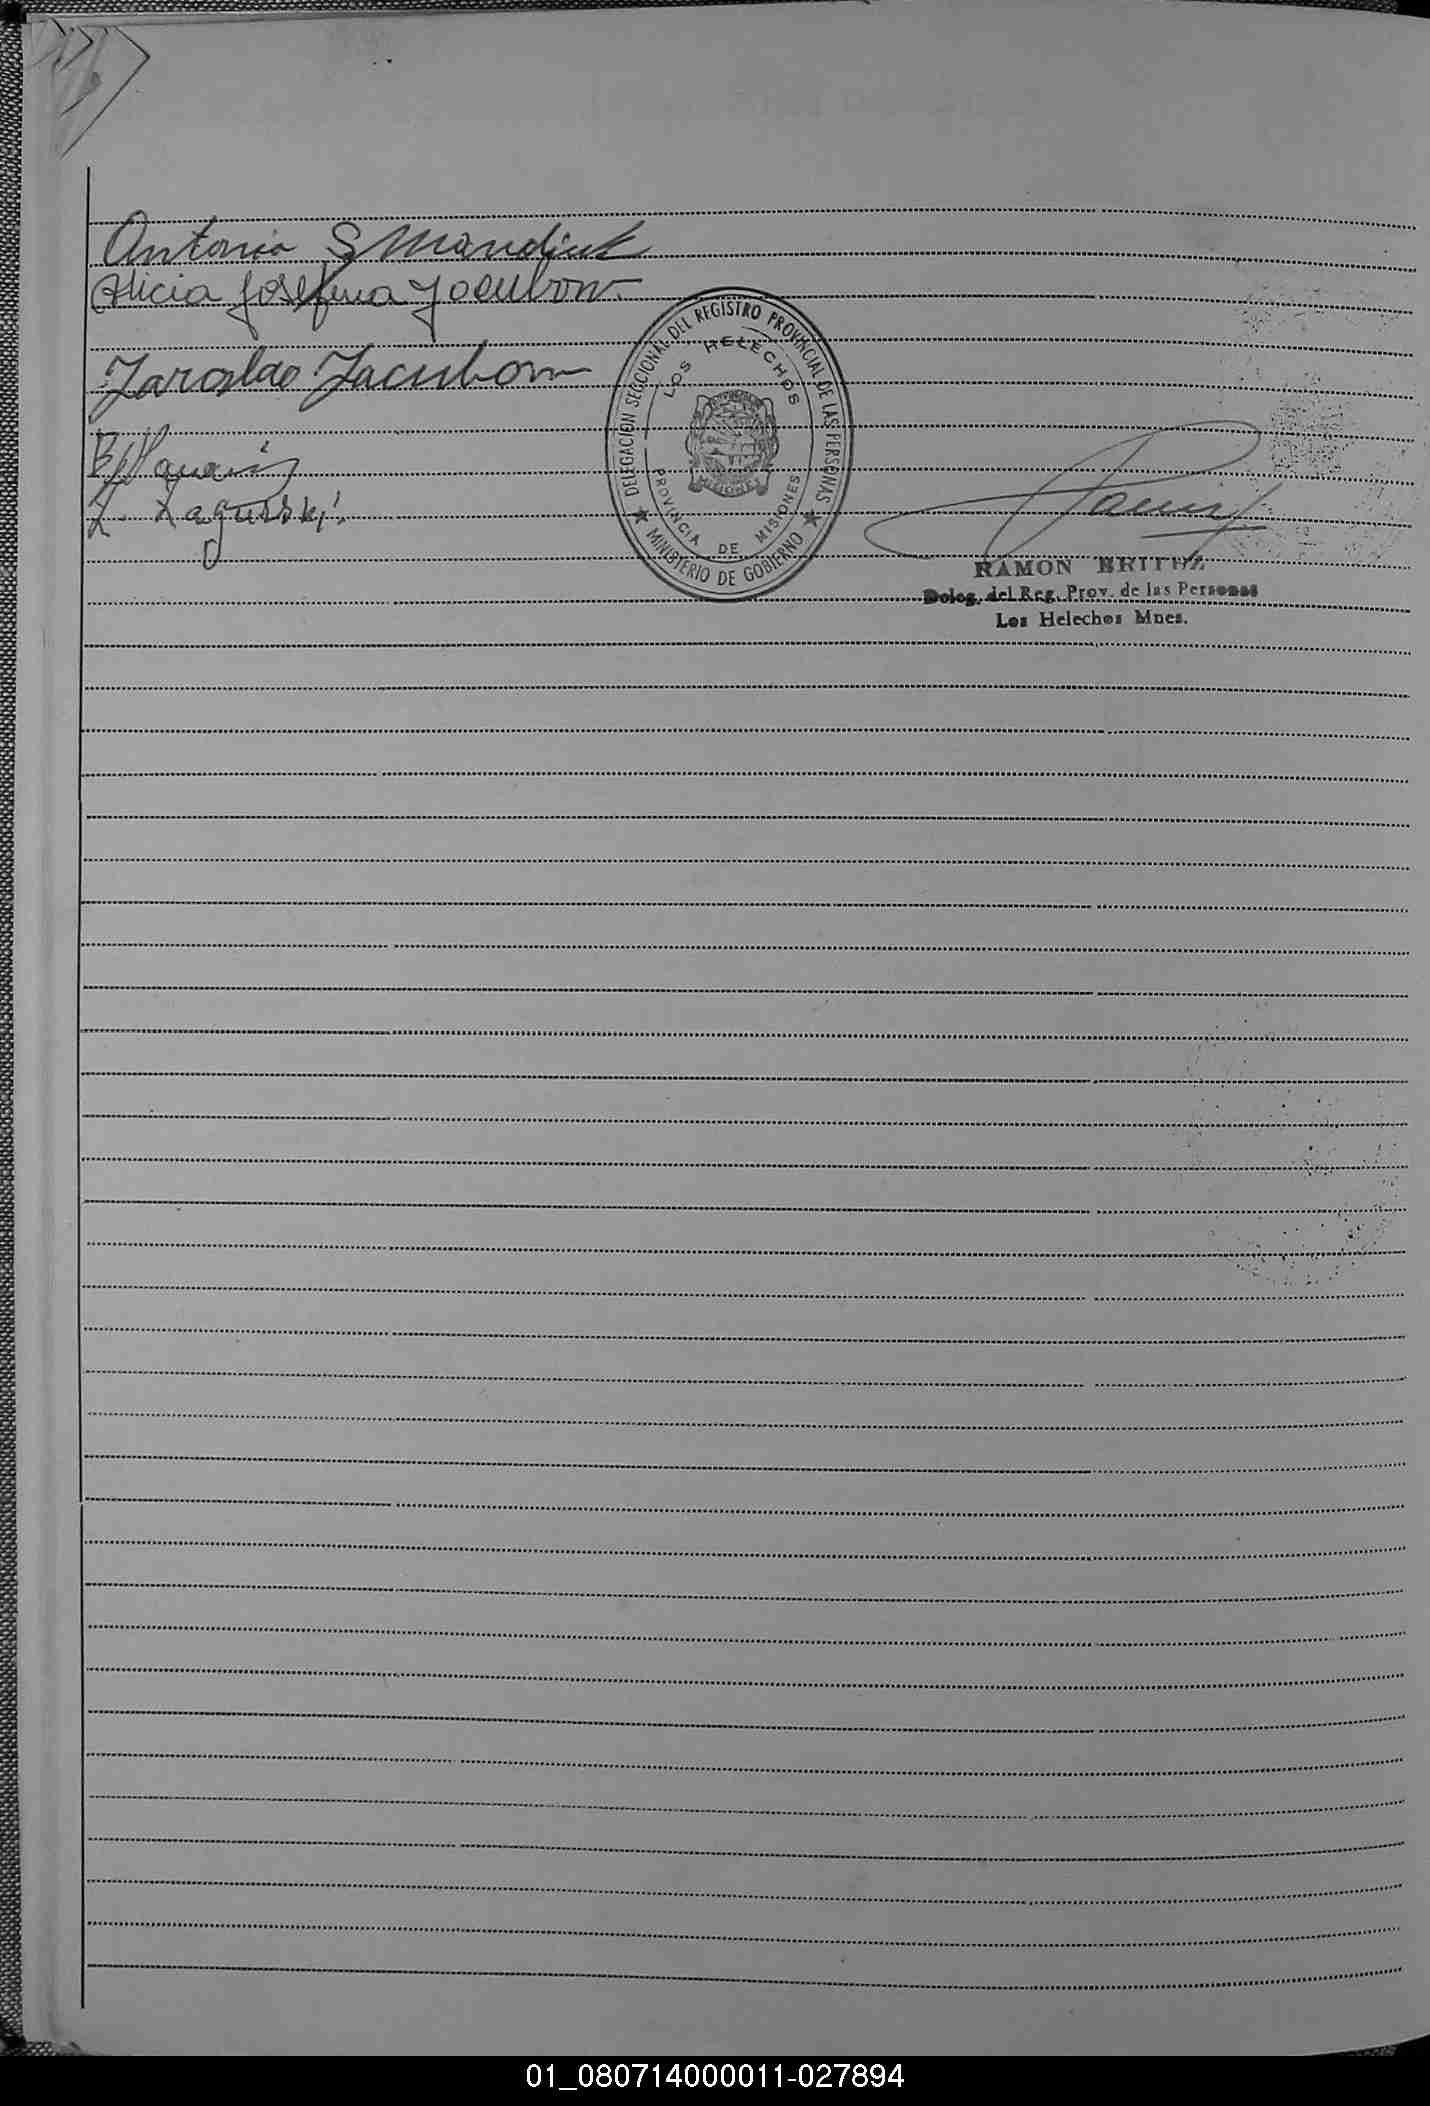 Antonio S Mandiuk
Alicia Josefina Jacubow.
Jaroslao Jacubow
L. Zagurski.
DELEGACION SECCIONAL DEL REGISTRO PROVINCIAL DE LAS PERSONAS
LOS HELECHOS
MISIONES
PROVINCIA DE MISIONES
★ MINISTERIO DE GOBIERNO ★
RAMON BRITEZ
Deleg. del Reg. Prov. de las Personas
Los Helechos Mnes.
01_080714000011-027894